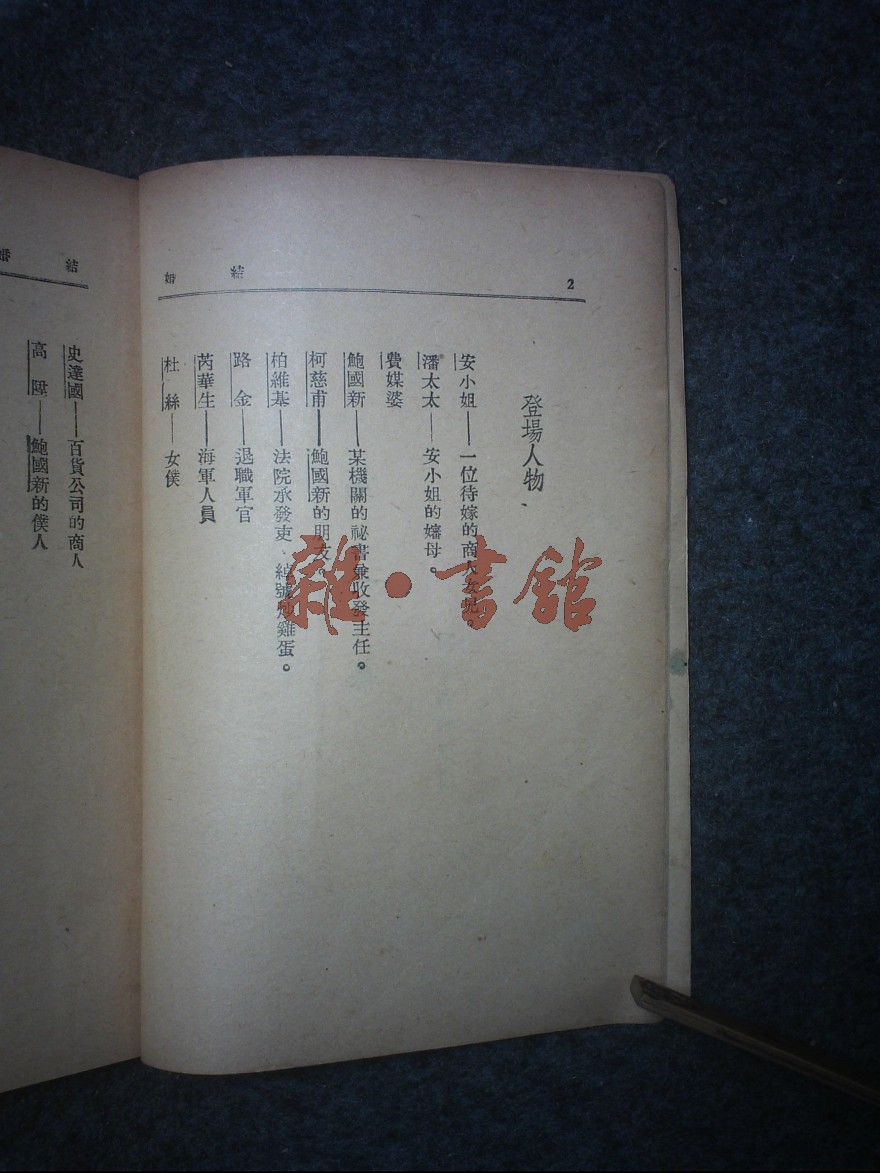 2
結婚
登場人物
安小姐——一位待嫁的商人女兒。
潘太太——安小姐的嬸母。
費媒婆
鮑國新——某機關的祕書兼收發主任。
柯慈甫——鮑國新的朋友。
柏維基——法院承發吏、綽號炒雞蛋。
路金——退職軍官
芮華生——海軍人員
杜絲——女僕
結婚
史達國——百貨公司的商人
高陞——鮑國新的僕人
雜·書館